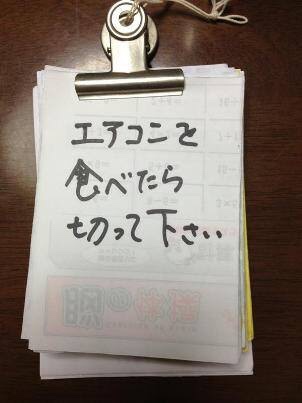 エアコンを
食べたら
切って下さい